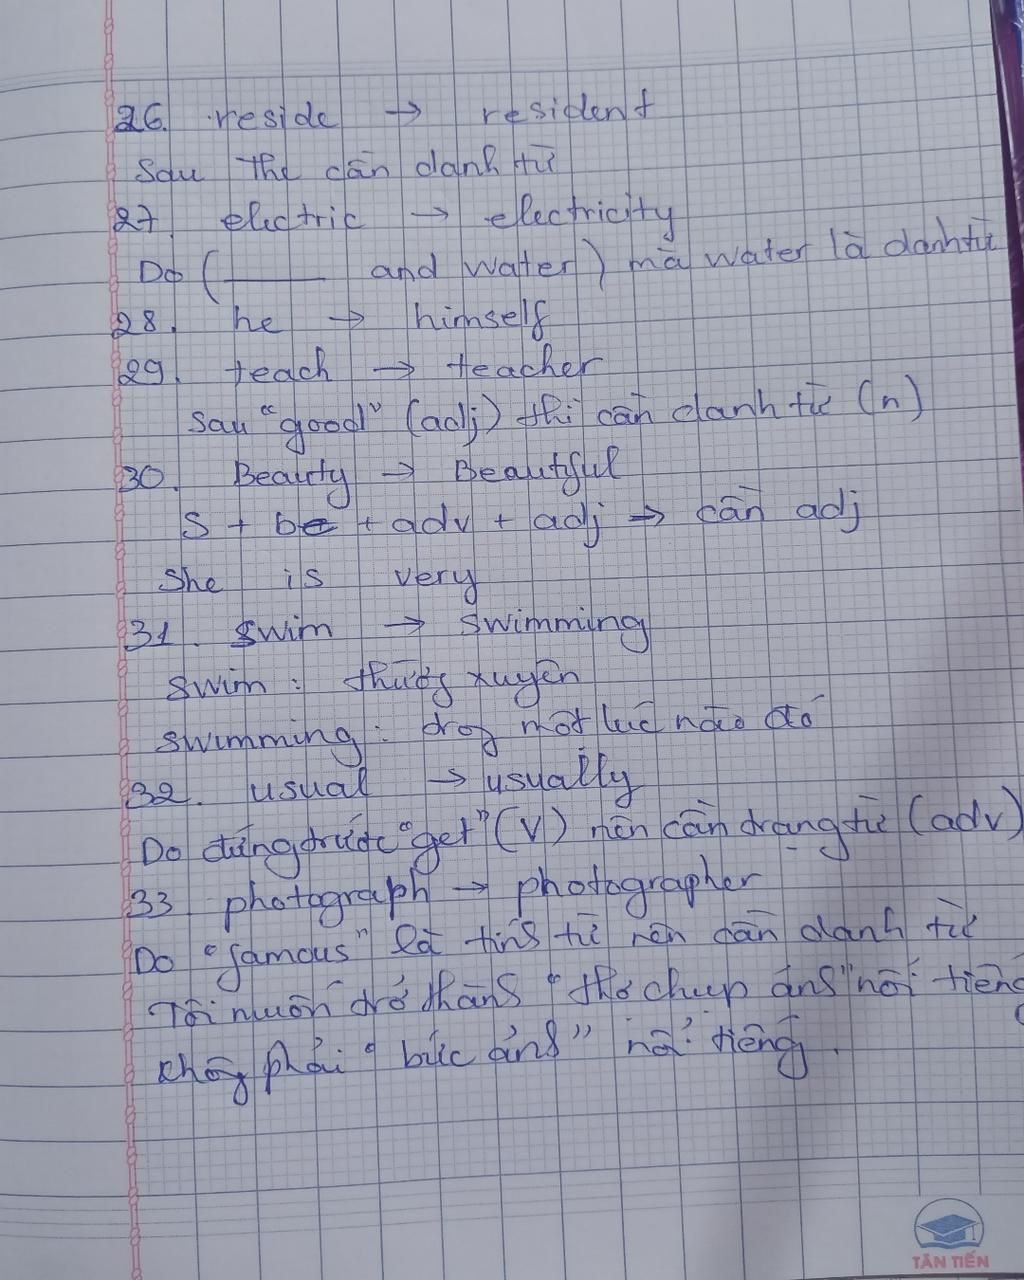 26. reside → resident
Sau the cần danh từ
27. electric → electricity
Do (____ and water) mà water là danh từ
28. he → himself
29. teach → teacher
Sau "good" (adj) thì cần danh từ (n)
30. Beauty → Beautiful
S + be + adv + adj → cần adj
She is very
31. swim → swimming
swim : thường xuyên
swimming : trog một lúc nào đó
32. usual → usually
Do đứng trước "get" (V) nên cần trạng từ (adv)
33 photograph → photographer
Do "famous" là tính từ nên cần danh từ
Tôi muốn trở thành "thợ chụp ảnh" nổi tiếng
không phải "bức ảnh" nổi tiếng.
TÂN TIẾN